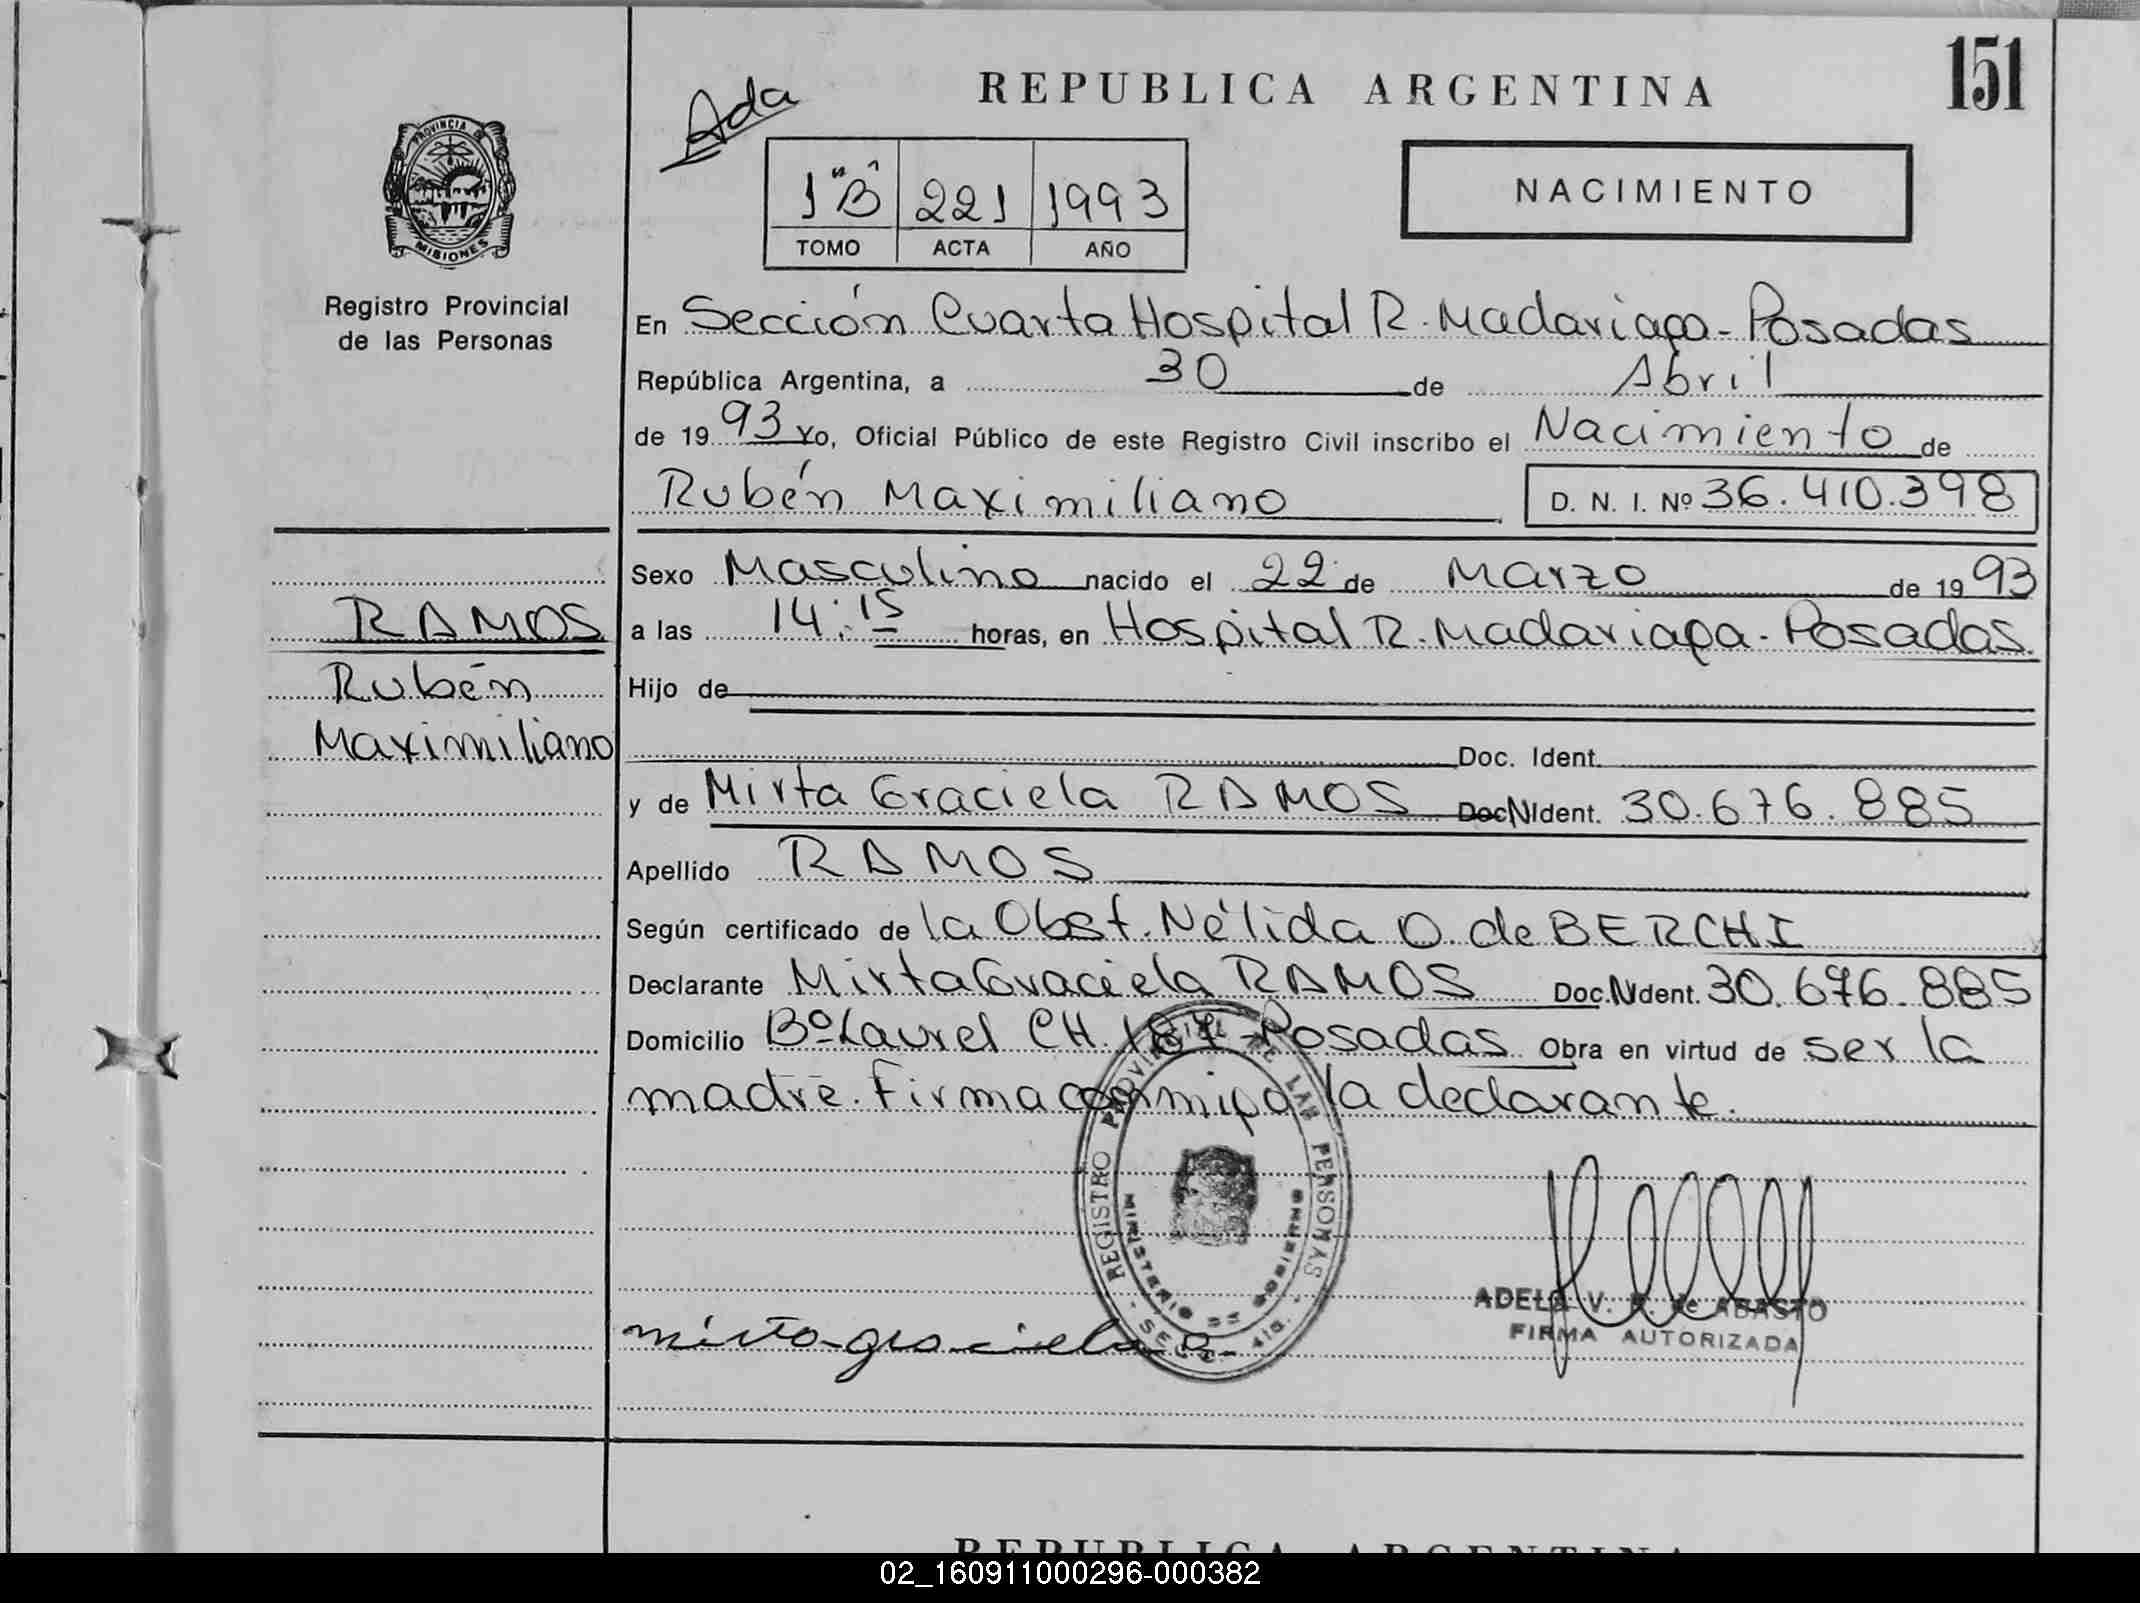 151
REPUBLICA ARGENTINA
Ada
1 "B" 221 1993
TOMO ACTA AÑO
NACIMIENTO
PROVINCIA DE
MISIONES
Registro Provincial
de las Personas
En Sección Cuarta Hospital R. Madariaga - Posadas
República Argentina, a 30 de Abril
de 1993 Yo, Oficial Público de este Registro Civil inscribo el Nacimiento de
Rubén Maximiliano D. N. I. Nº 36.410.398
Sexo Masculino nacido el 22 de Marzo de 1993
RAMOS
Rubén
Maximiliano
a las 14:15 horas, en Hospital R. Madariaga - Posadas.
Hijo de
Doc. Ident.
y de Mirta Graciela RAMOS Doc. Ident. 30.676.885
Apellido RAMOS
Según certificado de la Obst. Nélida O. de BERCHI
Declarante Mirta Graciela RAMOS Doc. Ident. 30.676.885
Domicilio Bº Laurel CH. 187 - Posadas Obra en virtud de ser la
madre. Firma conmigo la declarante.
REGISTRO PROVINCIAL DE LAS PERSONAS
MINISTERIO DE GOBIERNO
ADELA V. de ABASTO
FIRMA AUTORIZADA
mirta graciela R-
REPUBLICA ARGENTINA
02_160911000296-000382